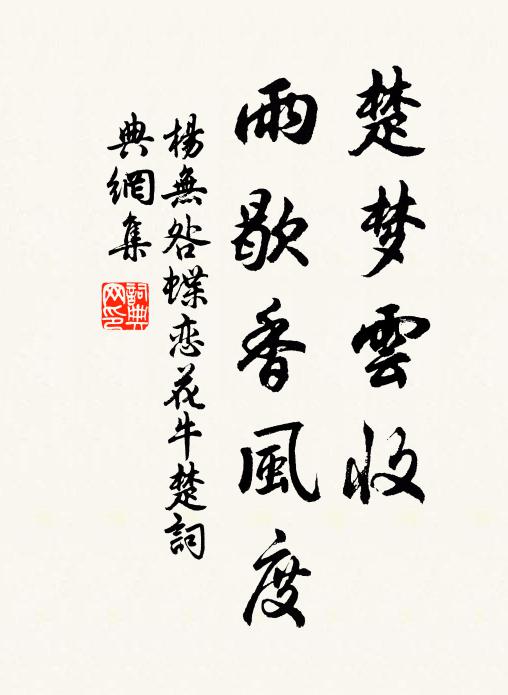 楚梦雲收
雨歇香風度
楊無咎蝶恋花牛楚詞
典網集
詞典
网印